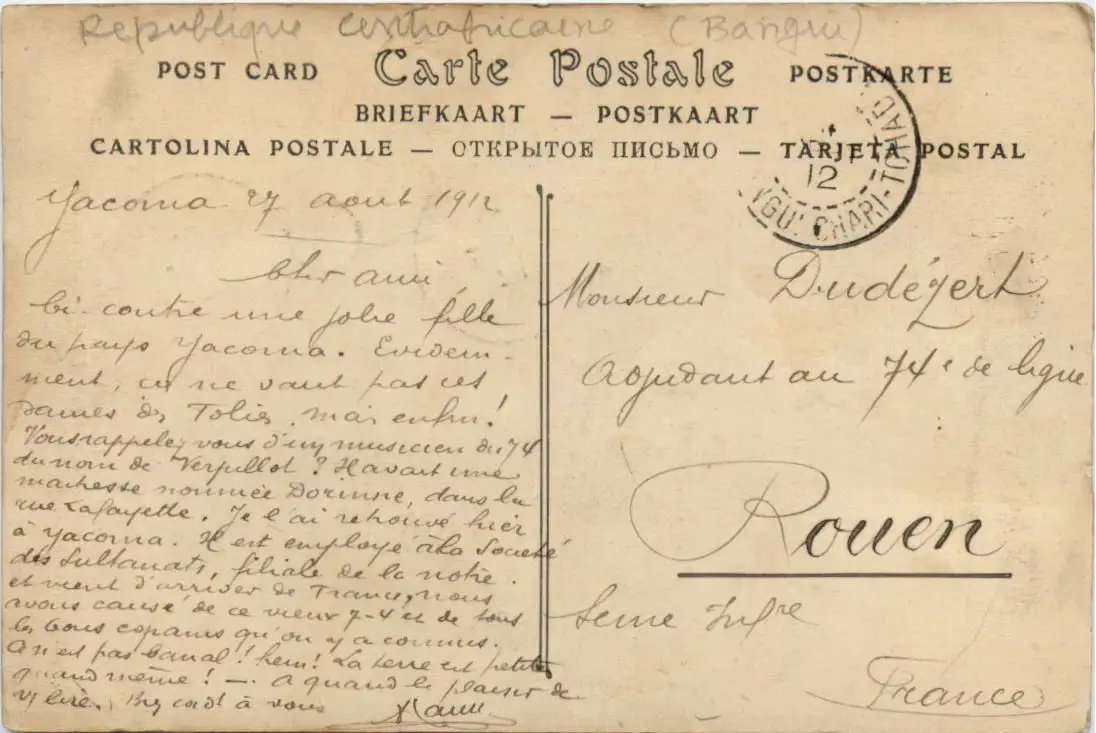 Republique centrafricaine (Bangui)
POST CARD Carte Postale POSTKARTE
BRIEFKAART — POSTKAART
CARTOLINA POSTALE — ОТКРЫТОЕ ПИСЬМО — TARJETA POSTAL
12
NGUI CHARI-TCHAD
Yacoma 27 aout 1912
Cher ami
Ci-contre une jolie fille
du pays Yacoma. Evidem-
ment, ça ne vaut pas ces
dames des Tolies, mais enfin!
Vous rappelez vous d'un musicien du 74
du nom de Verpillot? Il avait une
maitresse nommée Dorinne, dans la
rue Lafayette. Je l'ai retrouvé hier
à Yacoma. Il est employé à la Société
des Sultanats, filiale de la notre.
et vient d'arriver de France, nous
avons causé de ce vieux 7-4 et de tous
les bons copains qu'on y a connus.
Ça n'est pas banal! hein! La terre est petite
quand même! — A quand le plaisir de
v/ lire. Bien cordt à vous
Monsieur Dudézert
Adjudant au 74e de ligne
Rouen
Seine Infre
France